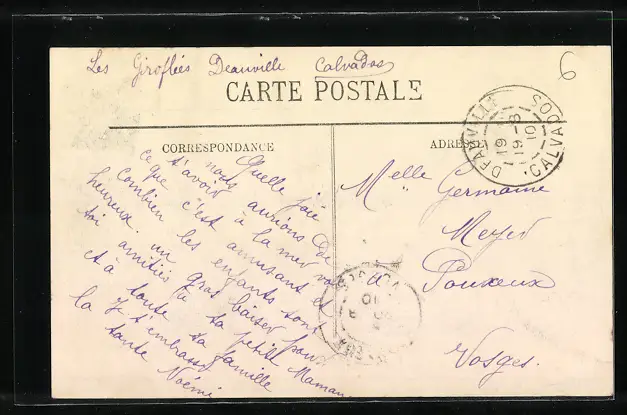 Les Giroflées Deauville Calvados
6
CARTE POSTALE
CORRESPONDANCE
ADRESSE
Quelle joie
nous aurions de
t'avoir à la mer voir
ce que c'est amusant et
combien les enfants sont
heureux. un gros baiser pour
toi amitiés à ta petite Maman
et à toute ta famille
la je t'embrasse
tante Noémi
Melle Germaine
Meyer
à Pouxeux
Vosges.
DEAUVILLE CALVADOS
19-8
10